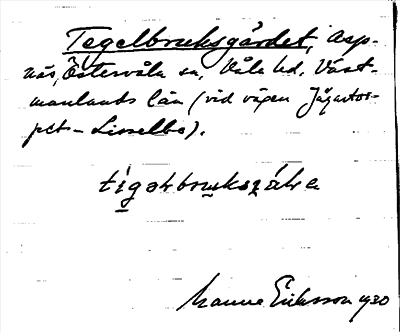 Tegelbruksgärdet, Asp-
näs, Östervåla sn, Våla hd, Väst-
manlands län (vid vägen Jägartor-
pet – Lisselbo).
Manne Eriksson 1930